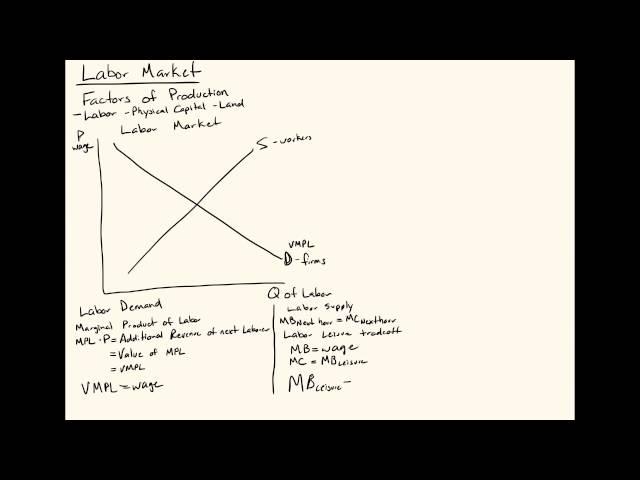 Labor Market
Factors of Production
- Labor - Physical Capital - Land
Labor Market
P
wage
S - workers
VMPL
D - firms
Q of Labor
Labor Demand
Marginal Product of Labor
MPL · P = Additional Revenue of next Laborer
= Value of MPL
= VMPL
VMPL = wage
Labor Supply
MB Next hour = MC Next hour
Labor Leisure tradeoff
MB = wage
MC = MB Leisure
MB Leisure =